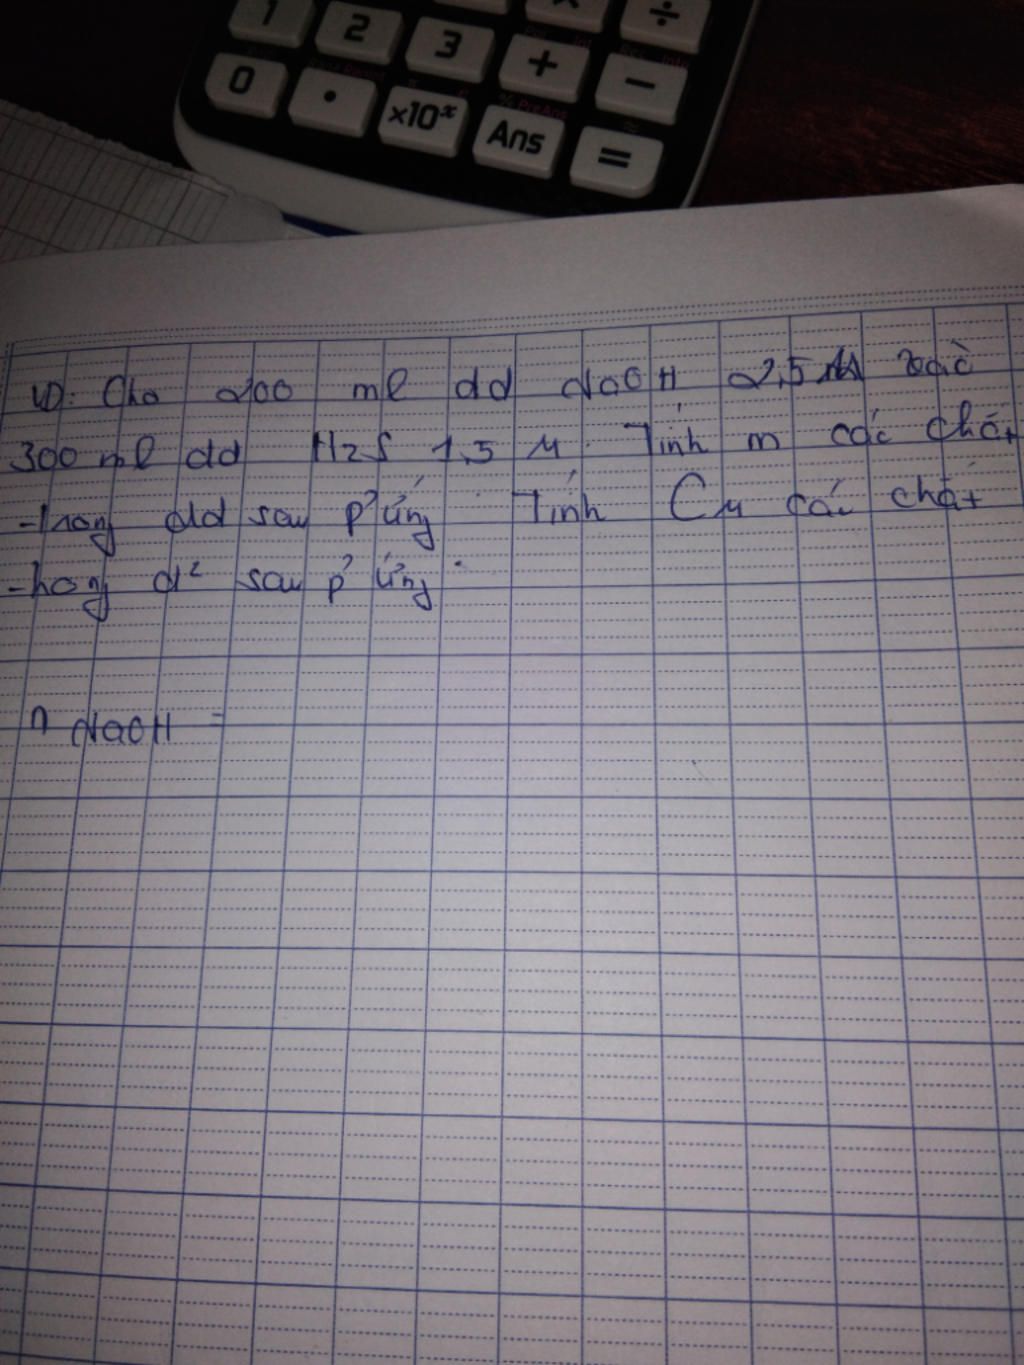 1 2 3 + −
0 • ×10ˣ Ans =
VD: Cho 200 ml dd NaOH 2,5 M vào
300 ml dd H2S 1,5 M. Tính m các chất
trong dd sau p'ứng. Tính CM các chất
trong d² sau p'ứng.
n NaOH =